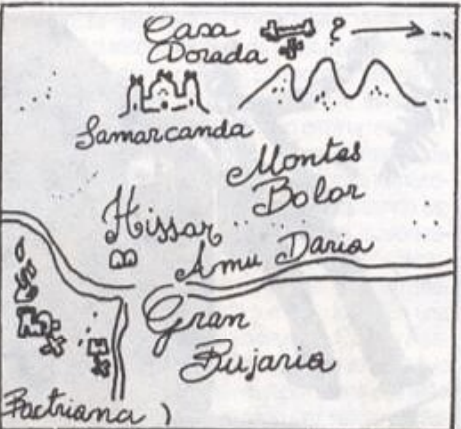 Casa
Dorada
? 
Samarcanda
Montes
Bolor
Hissar
Amu Daria
Gran
Bujaria
Bactriana )